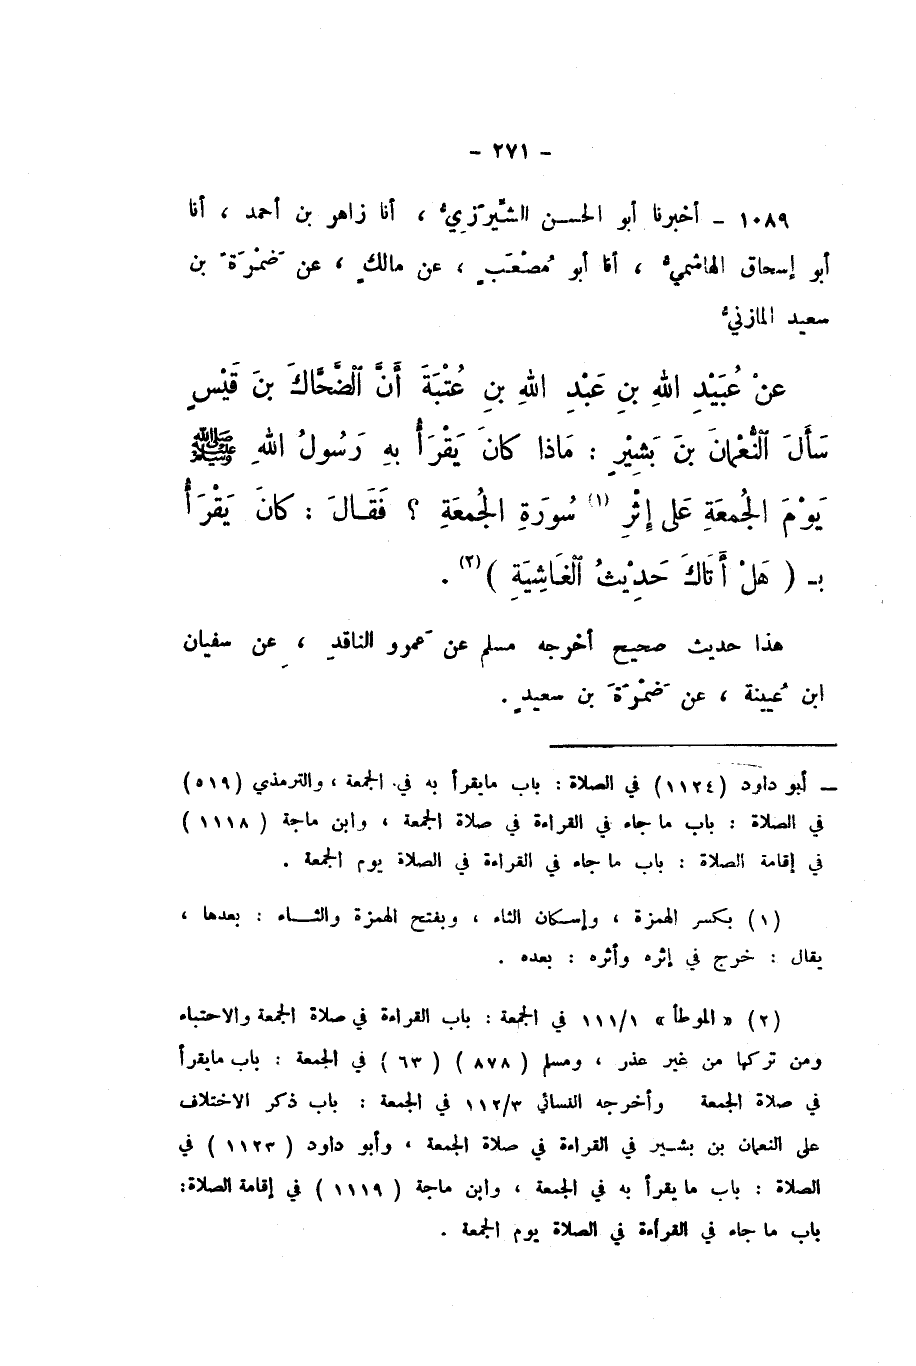 - ٢٧١ -
١٠٨٩ - أخبرنا أبو الحسن الشِّيرَزيُّ ، أنا زاهر بن أحمد ، أنا
أبو إسحاق الهاشميُّ ، أنا أبو مُصْعَبٍ ، عن مالكٍ ، عن ضَمْرَةَ بن
سعيد المازنيُّ
عنْ عُبَيْدِ اللهِ بنِ عَبْدِ اللهِ بنِ عُتْبَةَ أَنَّ الضَّحَّاكَ بنَ قَيْسٍ
سَأَلَ النُّعْمَانَ بنَ بَشِيْرٍ : مَاذا كانَ يَقْرَأُ بهِ رَسُولُ اللهِ ﷺ
يَوْمَ الجُمعَةِ عَلى إِثْرِ (١) سُورَةِ الجُمعَةِ ؟ فَقَالَ : كانَ يَقْرَأُ
بـ ( هَلْ أَتَاكَ حَدِيْثُ الغَاشِيَةِ ) (٢) .
هذا حديث صحيح أخرجه مسلم عن عَمرو الناقدِ ، عن سفيان
ابن عُيينة ، عن ضَمْرَةَ بن سعيدٍ .
— أبو داود ( ١١٢٤ ) في الصلاة : باب مايقرأ به في الجمعة ، والترمذي ( ٥١٩ )
في الصلاة : باب ما جاء في القراءة في صلاة الجمعة ، وابن ماجة ( ١١١٨ )
في إقامة الصلاة : باب ما جاء في القراءة في الصلاة يوم الجمعة .
(١) بكسر الهمزة ، وإسكان الثاء ، وبفتح الهمزة والثـــاء : بعدها ،
يقال : خرج في إثره وأثره : بعده .
(٢) « الموطأ » ١١١/١ في الجمعة : باب القراءة في صلاة الجمعة والاحتباء
ومن تركها من غير عذر ، ومسلم ( ٨٧٨ ) ( ٦٣ ) في الجمعة : باب مايقرأ
في صلاة الجمعة وأخرجه النسائي ١١٢/٣ في الجمعة : باب ذكر الاختلاف
على النعمان بن بشير في القراءة في صلاة الجمعة ، وأبو داود ( ١١٢٣ ) في
الصلاة : باب ما يقرأ به في الجمعة ، وابن ماجة ( ١١١٩ ) في إقامة الصلاة :
باب ما جاء في القرأءة في الصلاة يوم الجمعة .